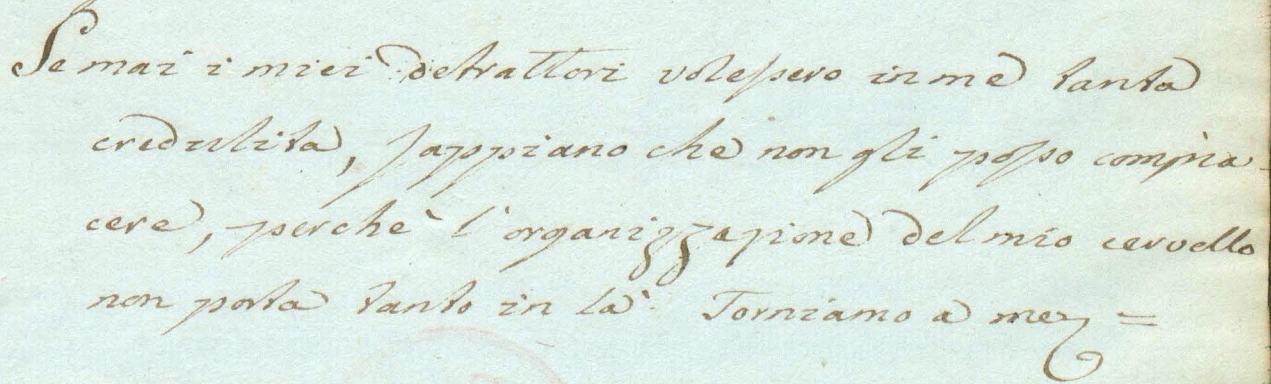 Se mai i miei detrattori volessero in me tanta
credulità, sappiano che non gli posso compia-
cere, perchè l'organizzazione del mio cervello
non porta tanto in là. Torniamo a mez=